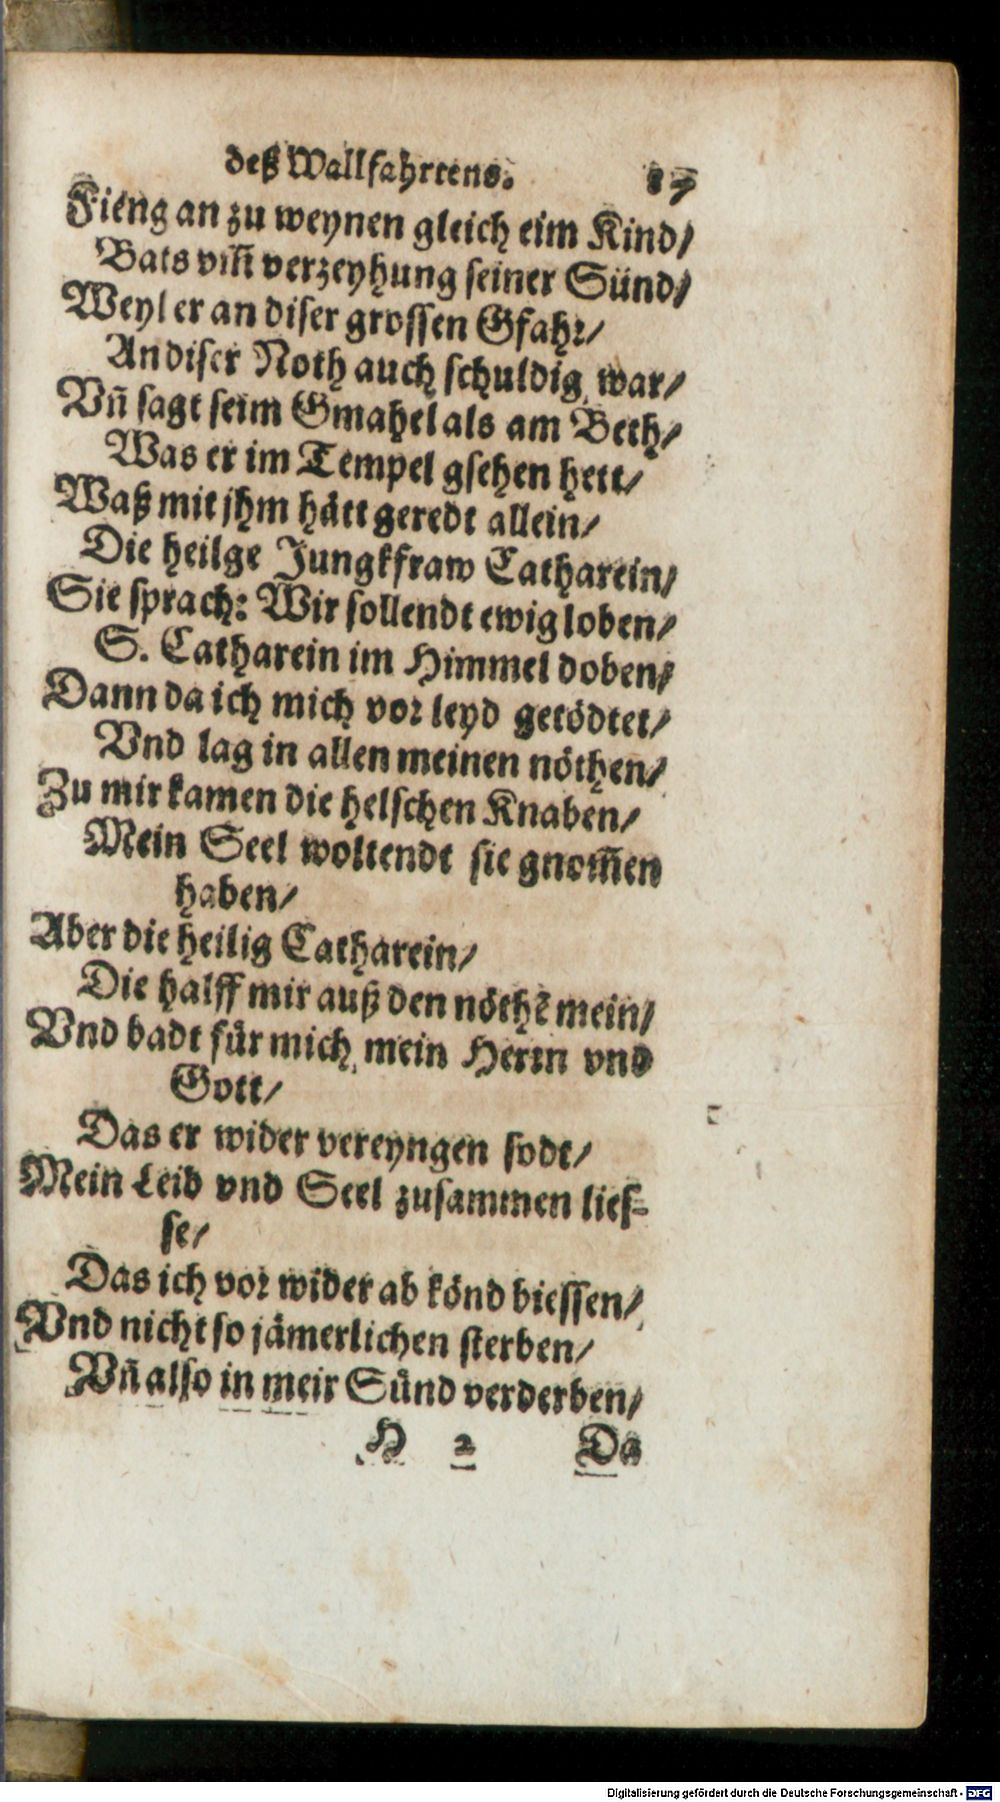 deß Wallfahrtens. 87
Fieng an zu weynen gleich eim Kind/
Bats vm̃ verzeyhung seiner Sünd/
Weyl er an diser grossen Gfahr/
An diser Noth auch schuldig war/
Vñ sagt seim Gmahel als am Beth/
Was er im Tempel gsehen hett/
Waß mit jhm hätt geredt allein/
Die heilge Jungkfraw Catharein/
Sie sprach: Wir sollendt ewig loben/
S. Catharein im Himmel doben/
Dann da ich mich vor leyd getödtet/
Vnd lag in allen meinen nöthen/
Zu mir kamen die helschen Knaben/
Mein Seel woltendt sie gnom̃en
haben/
Aber die heilig Catharein/
Die halff mir auß den nöthẽ mein/
Vnd badt für mich mein Herrn vnd
Gott/
Das er wider vereyngen sodt/
Mein Leib vnd Seel zusammen lies-
se/
Das ich vor wider ab könd biessen/
Vnd nicht so jämerlichen sterben/
Vñ also in meir Sünd verderben/
H 2 Da
Digitalisierung gefördert durch die Deutsche Forschungsgemeinschaft - DFG